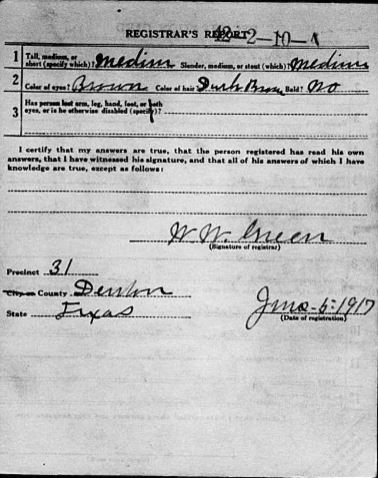 REGISTRAR'S REPORT 42-2-10-A
1 Tall, medium, or short (specify which)? Medium Slender, medium, or stout (which)? Medium
2 Color of eyes? Brown Color of hair? Dark Brown Bald? No
3 Has person lost arm, leg, hand, foot, or both
eyes, or is he otherwise disabled (specify)?
I certify that my answers are true, that the person registered has read his own
answers, that I have witnessed his signature, and that all of his answers of which I have
knowledge are true, except as follows:
W. W. Green
(Signature of registrar)
Precinct 31
City or County Denton
State Texas
June-5-1917
(Date of registration)